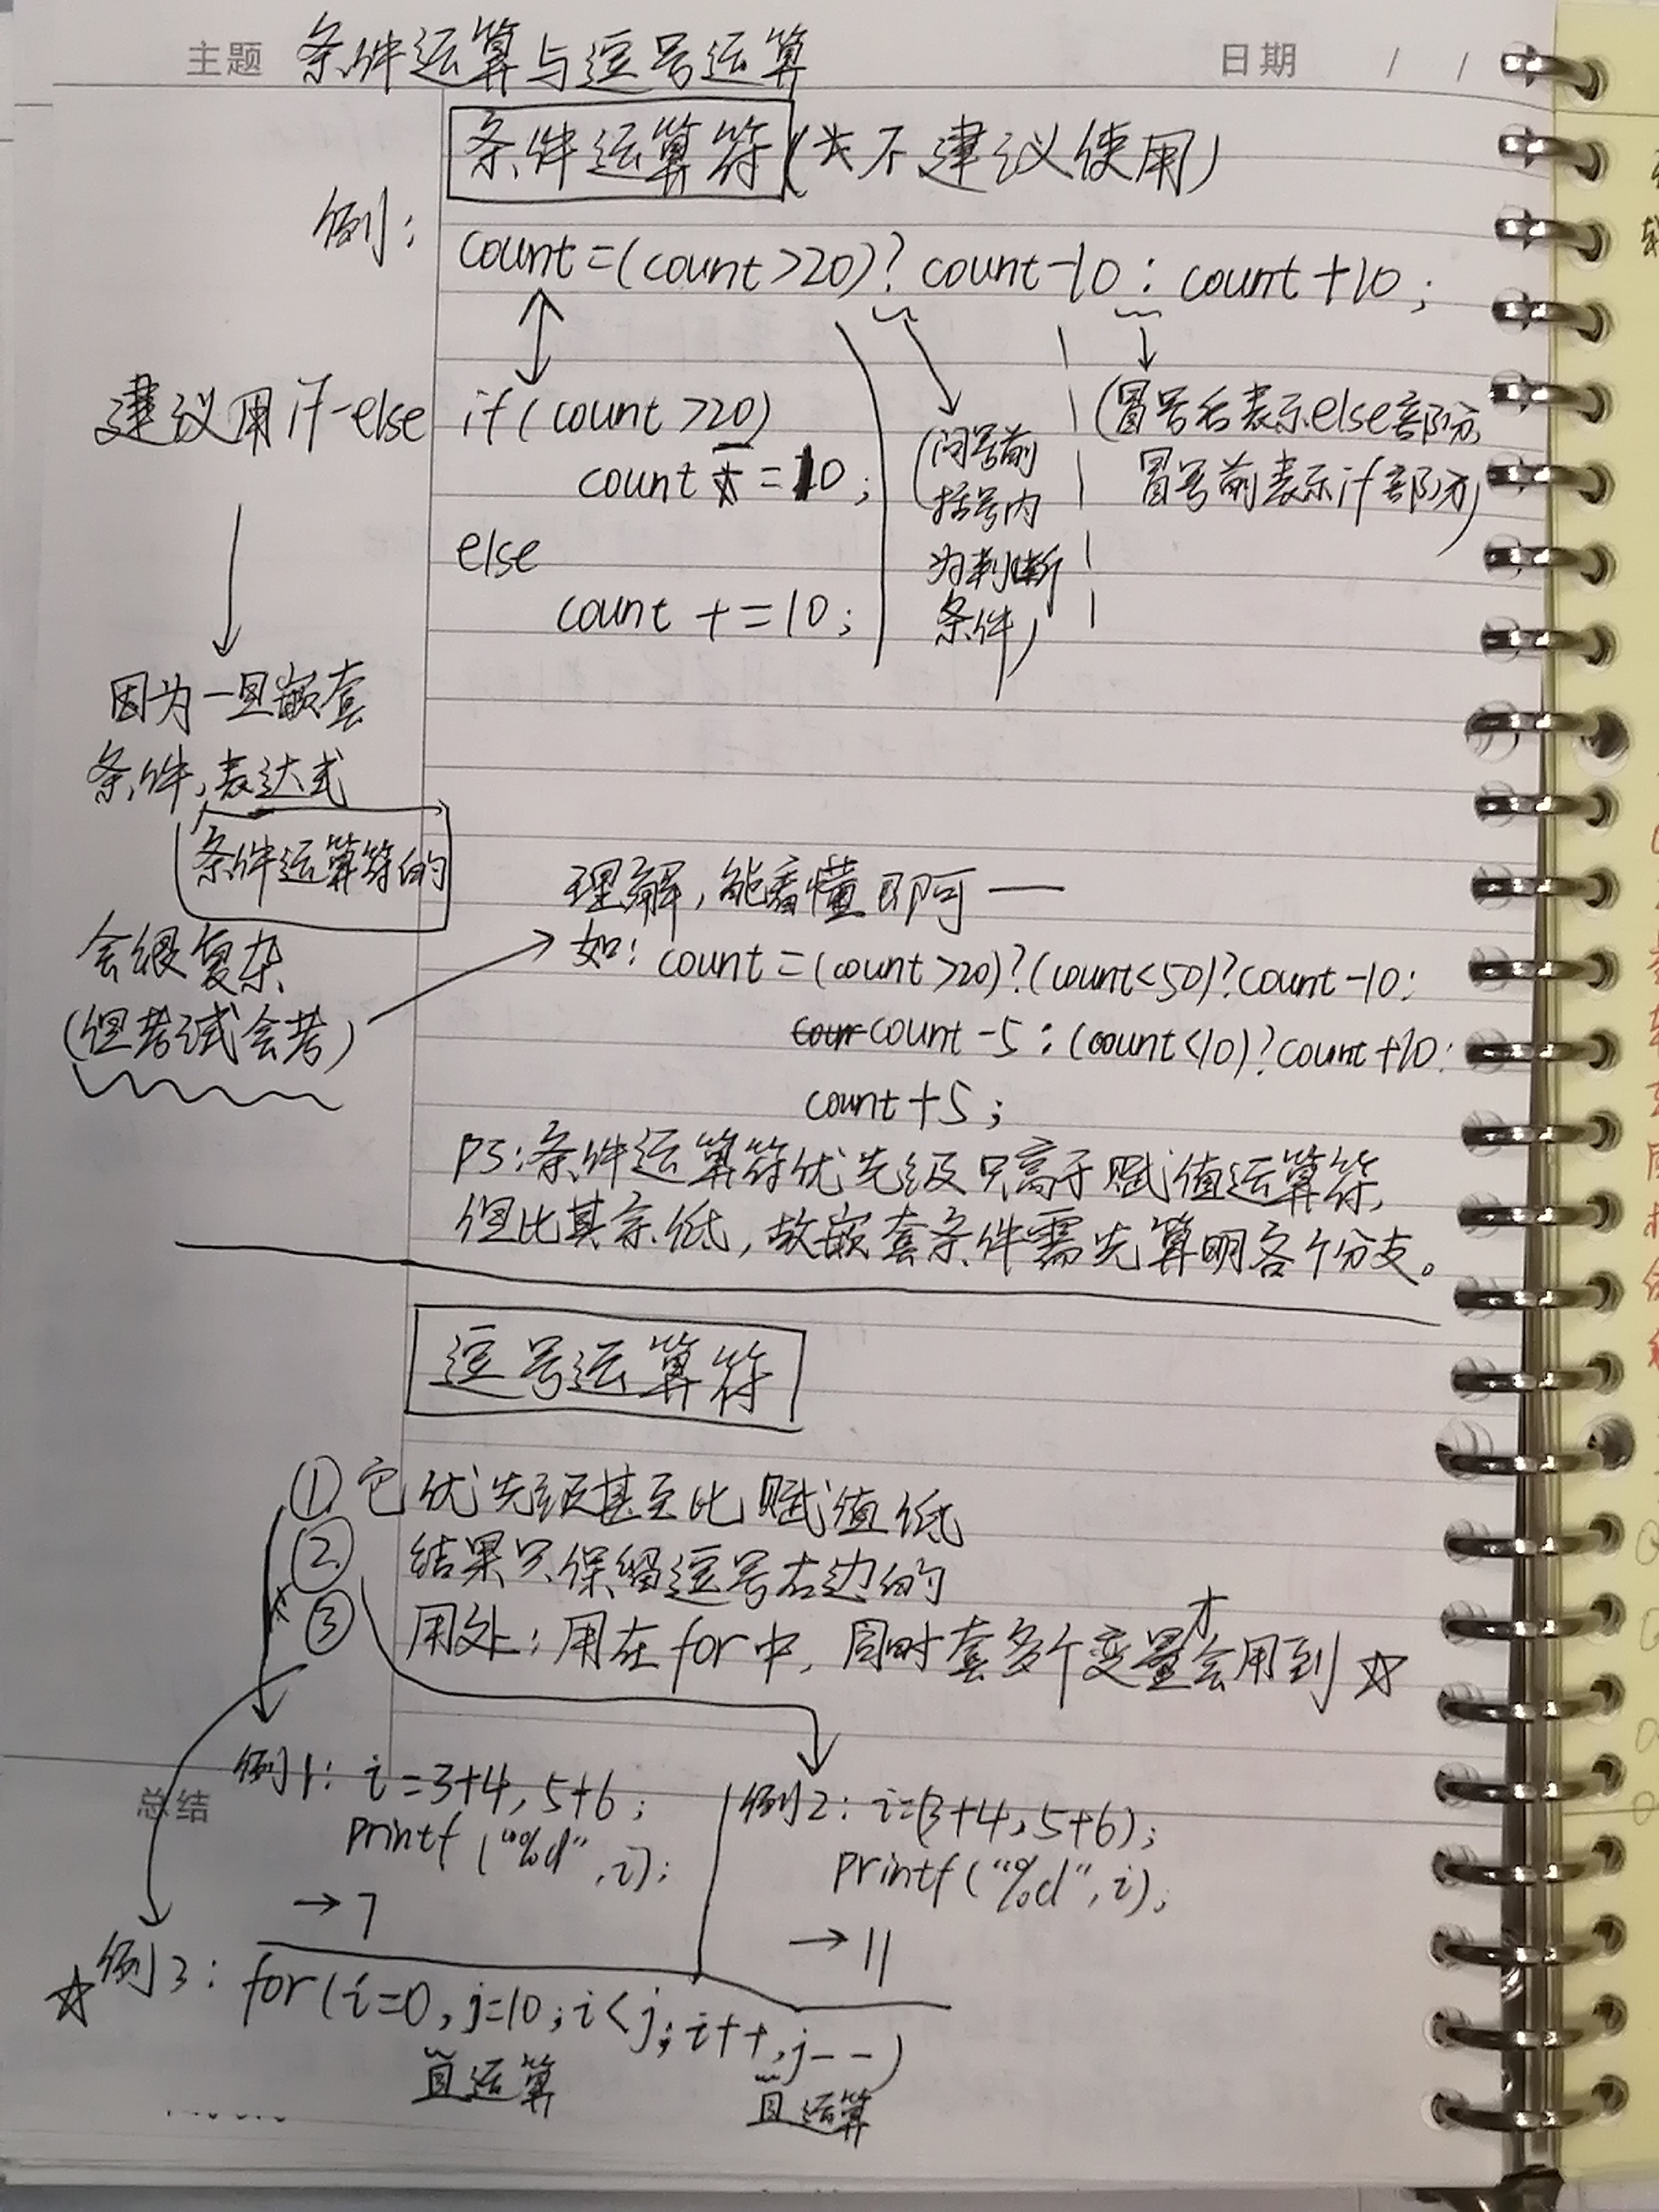 主题 条件运算与逗号运算
日期 / /
条件运算符(☆不建议使用)
例: count=(count>20)? count-10 : count+10;
建议用if-else
if(count>20)
count - =10;
else
count + =10;
(问号前
括号内
为判断
条件)
(冒号后表示else部分,
冒号前表示if部分)
因为一旦嵌套
条件,表达式
条件运算符的
会很复杂
(但考试会考)
理解,能看懂即可——
如: count=(count>20)?(count<50)?count-10:
count-5:(count<10)?count+10:
count+5;
PS:条件运算符优先级只高于赋值运算符,
但比其余低,故嵌套条件需先算明各个分支。
逗号运算符
① 它优先级甚至比赋值低
② 结果只保留逗号右边的
③ 用处:用在for中,同时套多个变量才会用到☆
总结
例1: i=3+4,5+6;
printf("%d",i);
→7
例2: i=(3+4,5+6);
printf("%d",i);
→11
☆例3: for(i=0,j=10;i<j;i++,j--)
且运算
且运算